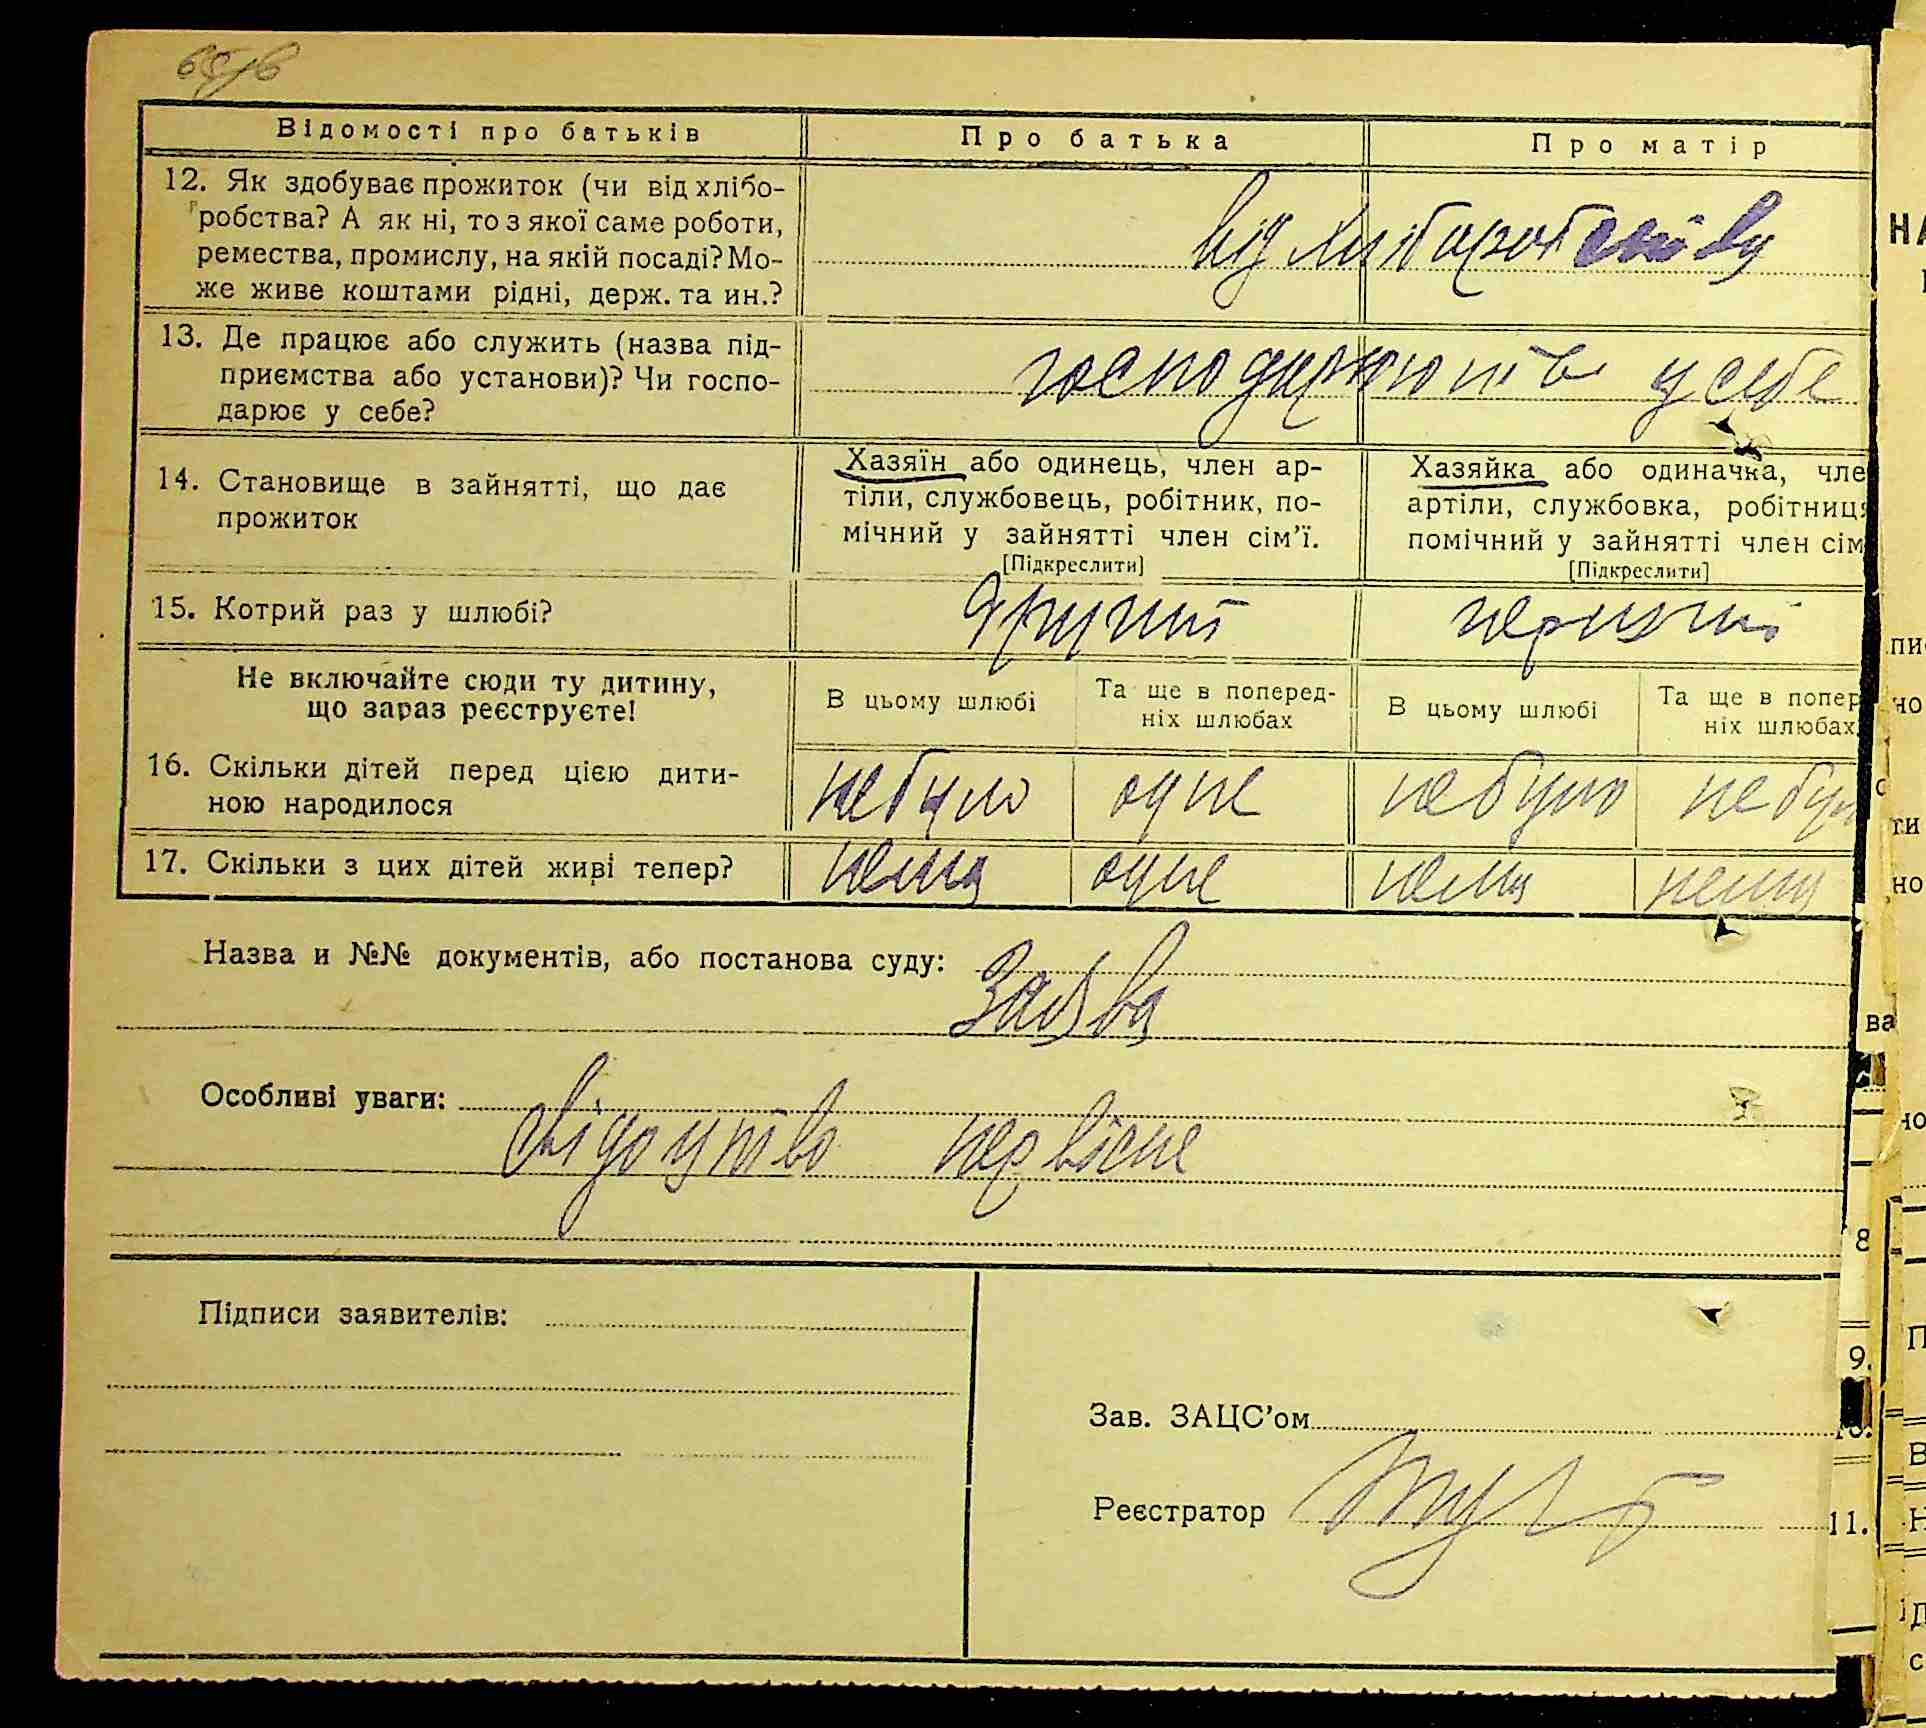 Відомості про батьків
Про батька
Про матір
12. Як здобуває прожиток (чи від хлібо-
робства? А як ні, то з якої саме роботи,
ремества, промислу, на якій посаді? Мо-
же живе коштами рідні, держ. та ин.?
від хлиборобства
13. Де працює або служить (назва під-
приємства або установи)? Чи госпо-
дарює у себе?
у себе
14. Становище в зайнятті, що дає
прожиток
Хазяїн або одинець, член ар-
тіли, службовець, робітник, по-
мічний у зайнятті член сім'ї.
[Підкреслити]
Хазяйка або одиначка, чле
артіли, службовка, робітниця
помічний у зайнятті член сім
[Підкреслити]
15. Котрий раз у шлюбі?
другий
первий
Не включайте сюди ту дитину,
що зараз реєструєте!
В цьому шлюбі
Та ще в поперед-
ніх шлюбах
В цьому шлюбі
Та ще в попер
ніх шлюбах
16. Скільки дітей перед цією дити-
ною народилося
небуло
одне
небуло
небул
17. Скільки з цих дітей живі тепер?
нема
одне
нема
нема
Назва и №№ документів, або постанова суду:
Заява
Особливі уваги:
свідоцтво первісне
Підписи заявителів:
Зав. ЗАЦС'ом
Реєстратор
8
9.
11.